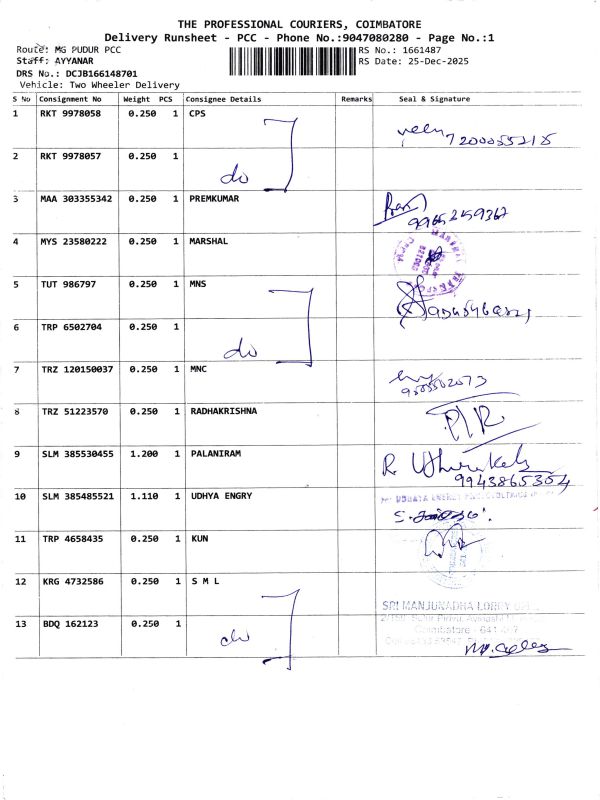 THE PROFESSIONAL COURIERS, COIMBATORE
Delivery Runsheet - PCC - Phone No.:9047080280 - Page No.:1
Route: MG PUDUR PCC RS No.: 1661487
Staff: AYYANAR RS Date: 25-Dec-2025
DRS No.: DCJB166148701
Vehicle: Two Wheeler Delivery
S No Consignment No Weight PCS Consignee Details Remarks Seal & Signature
1 RKT 9978058 0.250 1 CPS
7200055215
2 RKT 9978057 0.250 1 do
3 MAA 303355342 0.250 1 PREMKUMAR
9965259367
4 MYS 23580222 0.250 1 MARSHAL
5 TUT 986797 0.250 1 MNS
6 TRP 6502704 0.250 1 do
7 TRZ 120150037 0.250 1 MNC
8 TRZ 51223570 0.250 1 RADHAKRISHNA
9 SLM 385530455 1.200 1 PALANIRAM
9943865304
10 SLM 385485521 1.110 1 UDHYA ENGRY
11 TRP 4658435 0.250 1 KUN
12 KRG 4732586 0.250 1 S M L
SRI MANJUNADHA LORRY
13 BDQ 162123 0.250 1 do
Coimbatore - 641